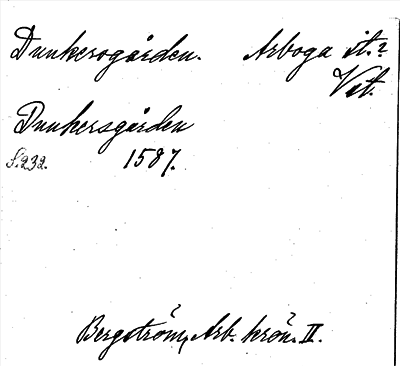 Dunkersgården. Arboga st.?
Vst.
Dunkersgården
S. 232. 1587.
Bergström, Arb. krön. II.